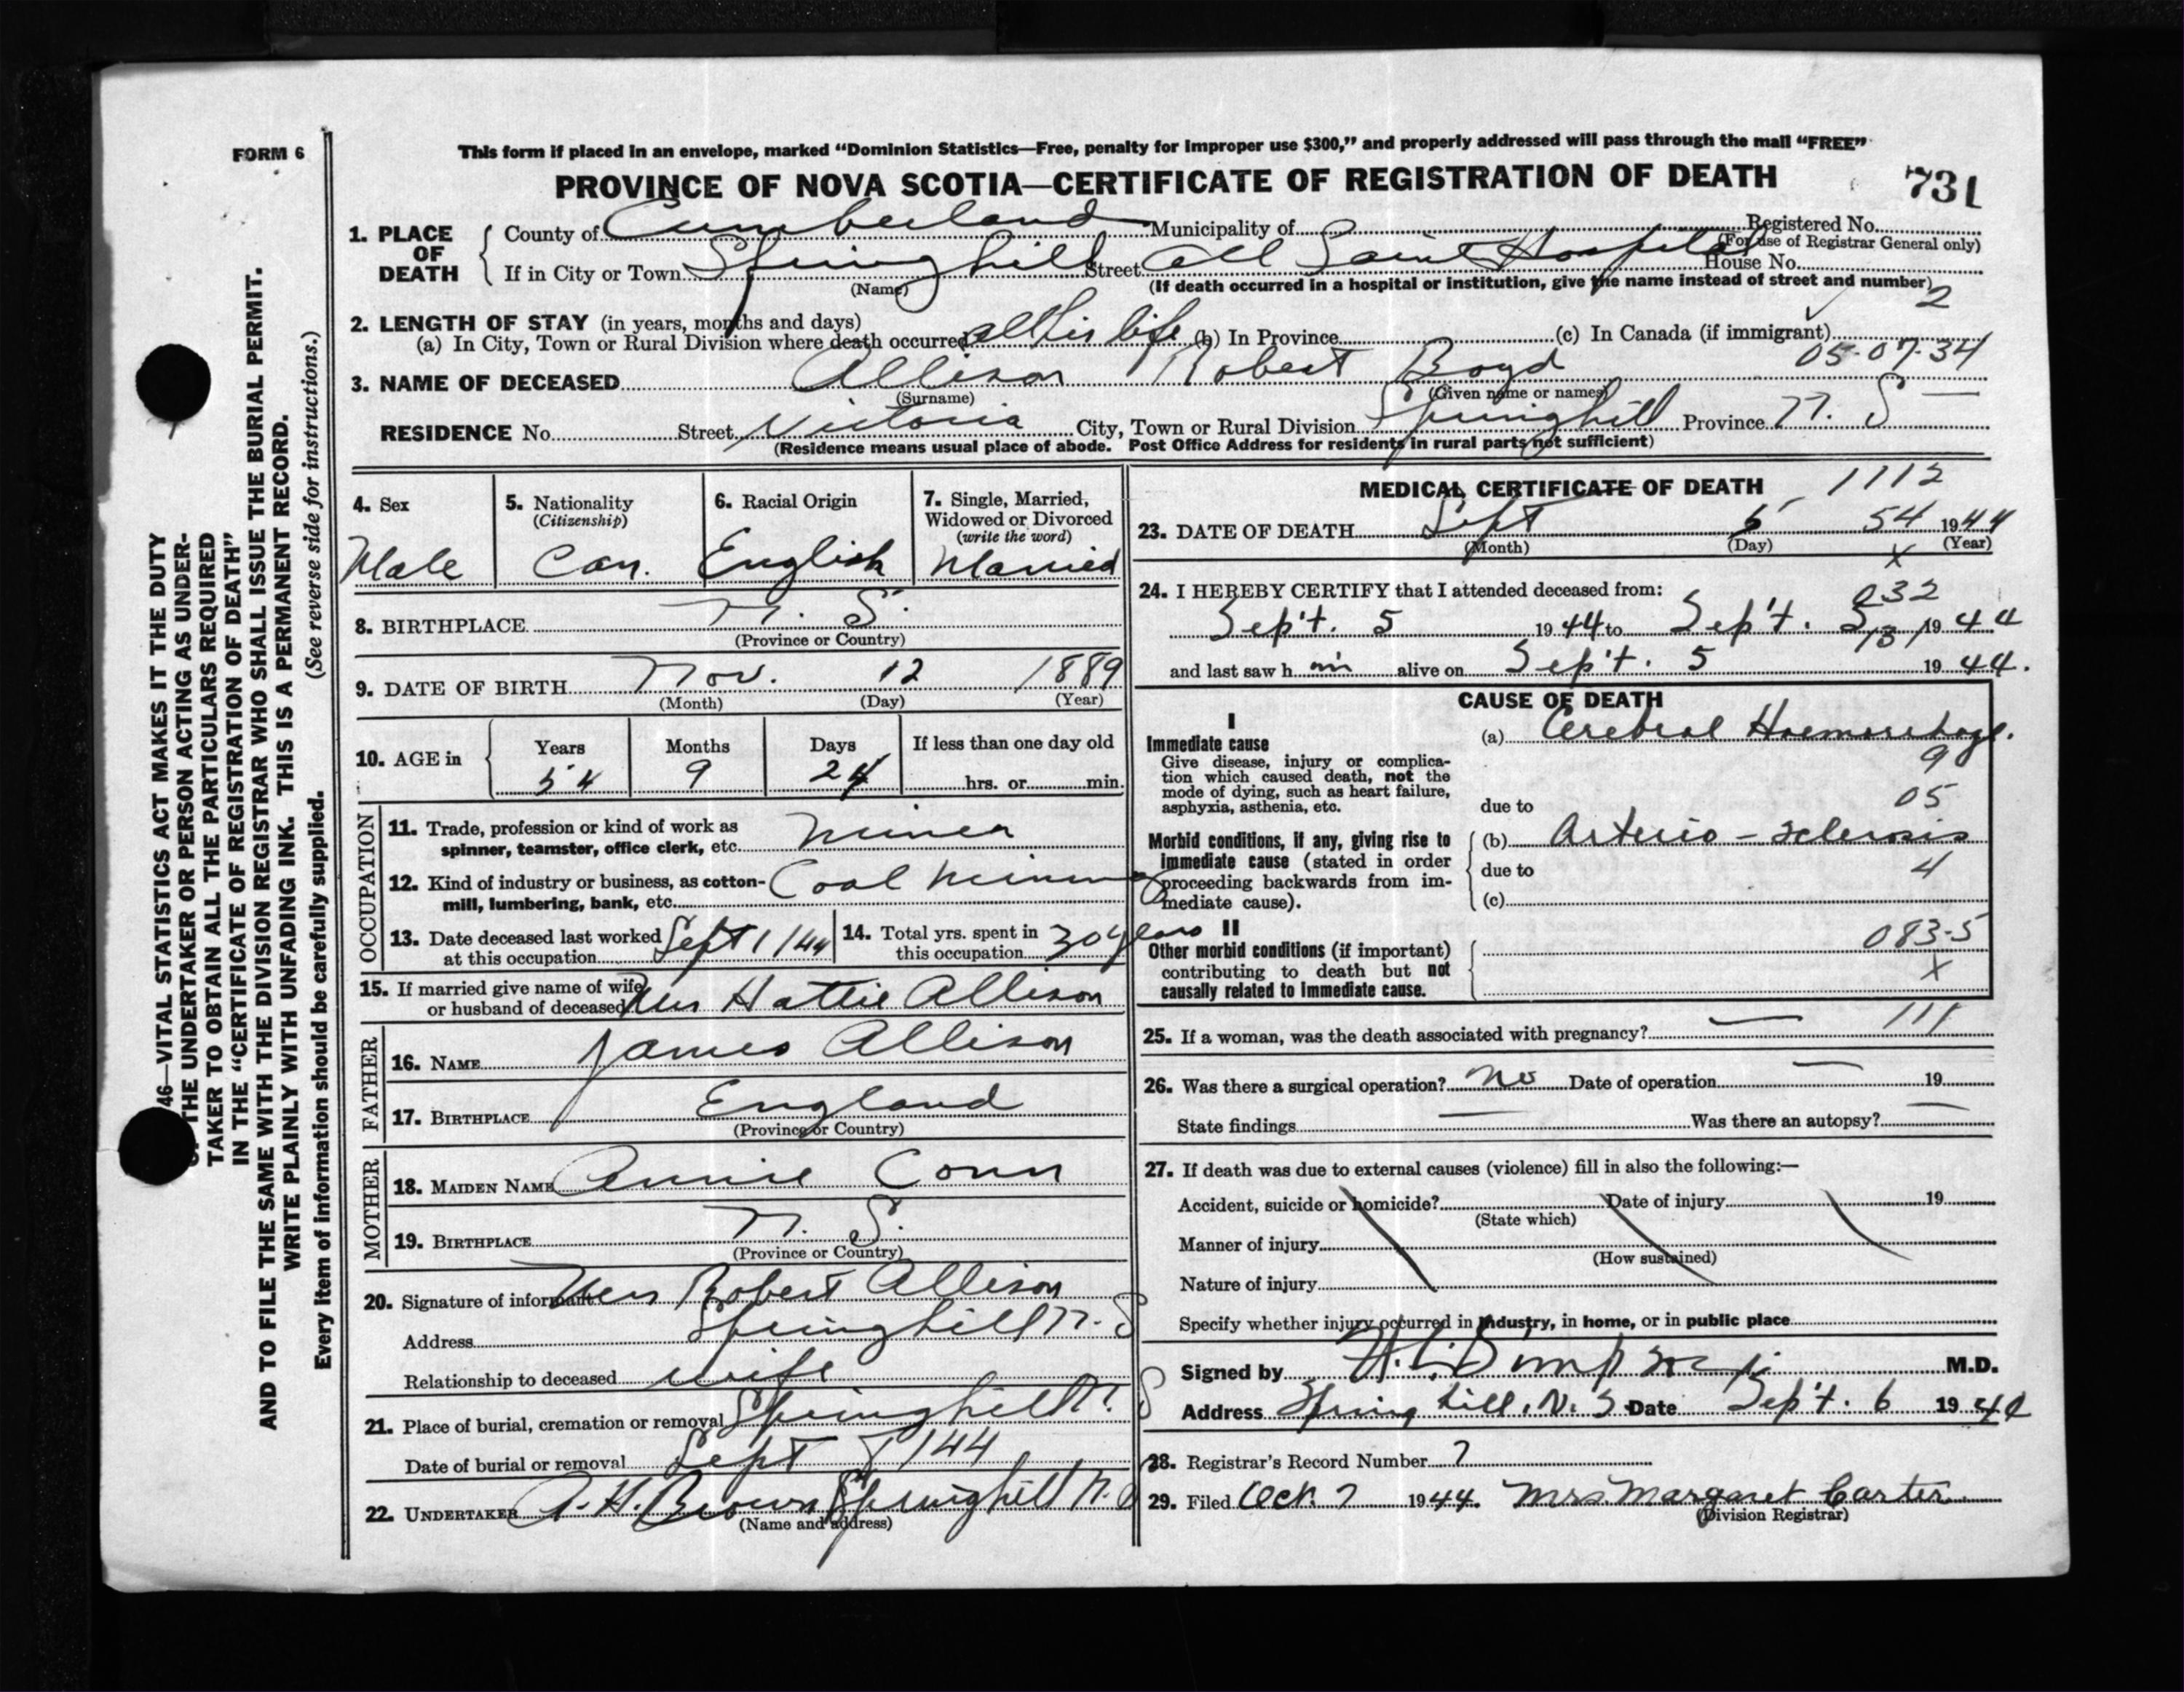 FORM 6
This form if placed in an envelope, marked "Dominion Statistics—Free, penalty for improper use $300," and properly addressed will pass through the mail "FREE"
PROVINCE OF NOVA SCOTIA—CERTIFICATE OF REGISTRATION OF DEATH
731
1. PLACE OF DEATH
County of Cumberland Municipality of Registered No.
(For use of Registrar General only)
If in City or Town Springhill Street All Saint Hospital House No.
(Name) (If death occurred in a hospital or institution, give the name instead of street and number)
2
2. LENGTH OF STAY (in years, months and days)
(a) In City, Town or Rural Division where death occurred all his life (b) In Province (c) In Canada (if immigrant)
05-07-34
3. NAME OF DECEASED Allison Robert Boyd
(Surname) (Given name or names)
RESIDENCE No. Street Victoria City, Town or Rural Division Springhill Province N. S
(Residence means usual place of abode. Post Office Address for residents in rural parts not sufficient)
4. Sex
Male
5. Nationality
(Citizenship)
Can.
6. Racial Origin
English
7. Single, Married,
Widowed or Divorced
(write the word)
Married
8. BIRTHPLACE N. S.
(Province or Country)
9. DATE OF BIRTH Nov. 12 1889
(Month) (Day) (Year)
10. AGE in
Years Months Days If less than one day old
54 9 24 hrs. or min.
OCCUPATION
11. Trade, profession or kind of work as
spinner, teamster, office clerk, etc. Miner
12. Kind of industry or business, as cotton-
mill, lumbering, bank, etc. Coal Mining
13. Date deceased last worked
at this occupation Sept 1/44
14. Total yrs. spent in
this occupation 30 years
15. If married give name of wife
or husband of deceased Mrs Hattie Allison
FATHER
16. NAME James Allison
17. BIRTHPLACE England
(Province or Country)
MOTHER
18. MAIDEN NAME Annie Conn
19. BIRTHPLACE N. S.
(Province or Country)
20. Signature of informant Mrs Robert Allison
Address Springhill N. S
Relationship to deceased wife
21. Place of burial, cremation or removal Springhill N. S
Date of burial or removal Sept 8/44
22. UNDERTAKER A. H. Brown Springhill N. S
(Name and address)
MEDICAL CERTIFICATE OF DEATH
1112
23. DATE OF DEATH Sept 5 54 1944
(Month) (Day) (Year)
x
24. I HEREBY CERTIFY that I attended deceased from:
032
Sep't. 5 1944 to Sep't. 5 1944
131
and last saw him alive on Sep't. 5 1944.
CAUSE OF DEATH
I
Immediate cause
Give disease, injury or complica-
tion which caused death, not the
mode of dying, such as heart failure,
asphyxia, asthenia, etc.
(a) Cerebral Haemorrhage.
9
due to 05
Morbid conditions, if any, giving rise to
immediate cause (stated in order
proceeding backwards from im-
mediate cause).
(b) Arterio-sclerosis
due to 4
(c)
II
Other morbid conditions (if important)
contributing to death but not
causally related to immediate cause.
083-5
x
25. If a woman, was the death associated with pregnancy? — 111
26. Was there a surgical operation? No Date of operation — 19
State findings — Was there an autopsy? —
27. If death was due to external causes (violence) fill in also the following:—
Accident, suicide or homicide? Date of injury 19
(State which)
Manner of injury
(How sustained)
Nature of injury
Specify whether injury occurred in industry, in home, or in public place
Signed by M.D.
Address Spring hill. N. S Date Sep't. 6 1944
28. Registrar's Record Number 7
29. Filed Oct. 7 1944. Mrs. Margaret Carter
(Division Registrar)
46—VITAL STATISTICS ACT MAKES IT THE DUTY
THE UNDERTAKER OR PERSON ACTING AS UNDER-
TAKER TO OBTAIN ALL THE PARTICULARS REQUIRED
IN THE "CERTIFICATE OF REGISTRATION OF DEATH"
AND TO FILE THE SAME WITH THE DIVISION REGISTRAR WHO SHALL ISSUE THE BURIAL PERMIT.
WRITE PLAINLY WITH UNFADING INK. THIS IS A PERMANENT RECORD.
Every item of information should be carefully supplied. (See reverse side for instructions.)